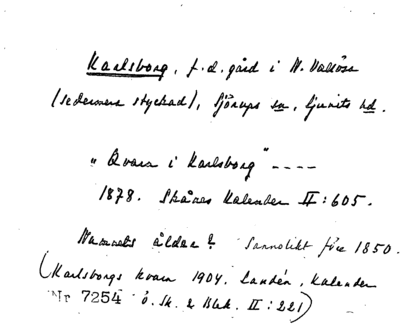 Karlsborg, f.d. gård i N. Vallösa
(sedermera styckad), Sjörups sn, Ljunits hd.
"Qvarn i Karlsborg" ----
1878. Skånes Kalender II:605.
Namnets ålder? Sannolikt före 1850.
(Karlsborgs kvarn 1904. Landén, Kalender
Nr 7254 ö. Sk. & Blek. II:221)